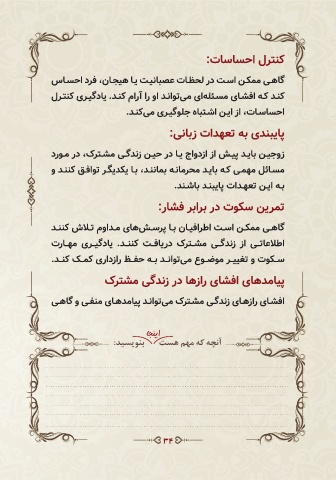 کنترل احساسات:
گاهی ممکن است در لحظات عصبانیت یا هیجان، فرد احساس
کند که افشای مسئله‌ای می‌تواند او را آرام کند. یادگیری کنترل
احساسات، از این اشتباه جلوگیری می‌کند.
پایبندی به تعهدات زبانی:
زوجین باید پیش از ازدواج یا در حین زندگی مشترک، در مورد
مسائل مهمی که باید محرمانه بمانند، با یکدیگر توافق کنند و
به این تعهدات پایبند باشند.
تمرین سکوت در برابر فشار:
گاهی ممکن است اطرافیان با پرسش‌های مداوم تلاش کنند
اطلاعاتی از زندگی مشترک دریافت کنند. یادگیری مهارت
سکوت و تغییر موضوع می‌تواند به حفظ رازداری کمک کند.
پیامدهای افشای رازها در زندگی مشترک
افشای رازهای زندگی مشترک می‌تواند پیامدهای منفی و گاهی
آنچه که مهم هست اینجا بنویسید:
۳۴